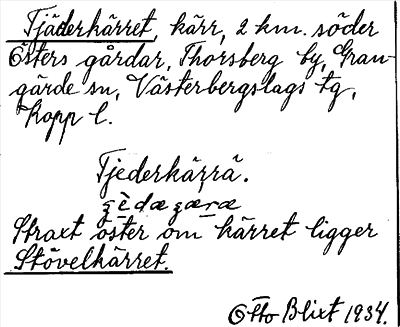 Tjäderkärret, kärr, 2 km. söder
Östers gårdar, Thorsberg by, Gran-
gärde sn, Västerbergslags tg,
Kopp. l.
Tjederkärrä.
Straxt öster om kärret ligger
Stövelkärret.
Otto Blixt 1934.